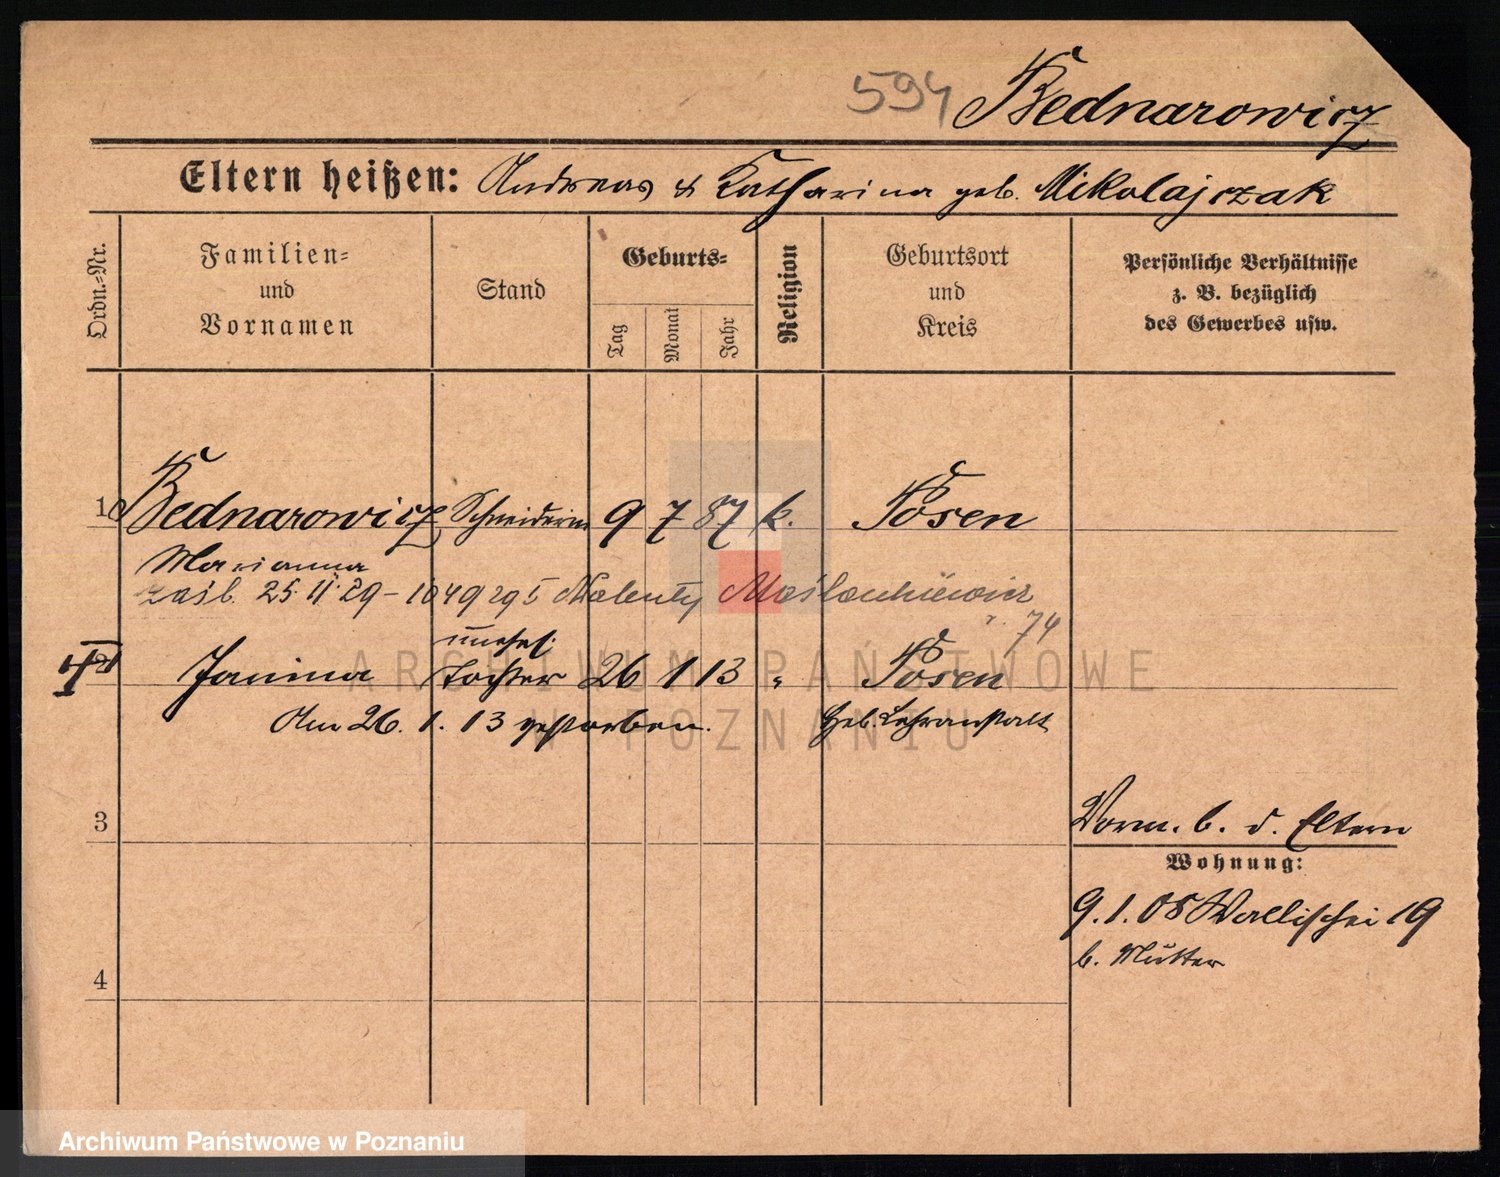 594 Bednarowicz
Eltern heißen: Andreas & Katharina geb. Mikolajczak
Ordn.-Nr.
Familien=
und
Vornamen
Stand
Geburts=
Tag
Monat
Jahr
Religion
Geburtsort
und
Kreis
Persönliche Verhältnisse
z. B. bezüglich
des Gewerbes usw.
1 Bednarowicz Schneiderin 9 7 87 k. Posen
Marianna
zaśl. 25.11.29 - 1049 Walenty Maślankiewicz
74
unehel.
2 Janina Tochter 26 1 13 " Posen
Am 26. 1. 13 gestorben. Heb. Lehranstalt
3
Vorm. b. d. Eltern
Wohnung:
9.1.08 Wallischei 19
b. Mutter
4
ARCHIWUM PAŃSTWOWE
W POZNANIU
Archiwum Państwowe w Poznaniu